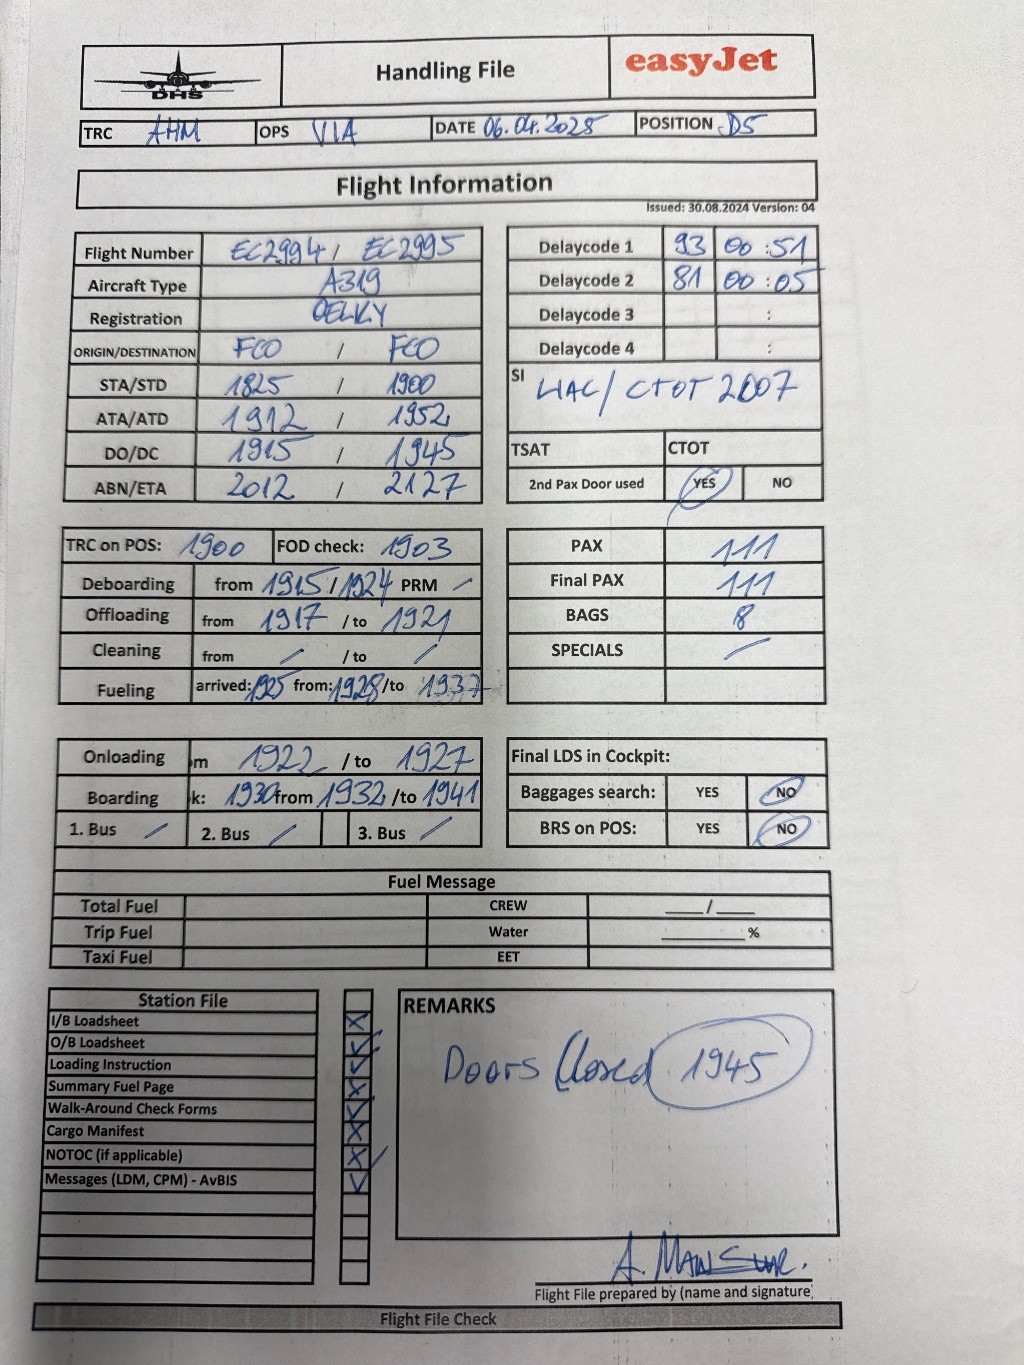 DHS Handling File easyJet
TRC AHM OPS VIA DATE 06.04.2025 POSITION D5
Flight Information
Issued: 30.08.2024 Version: 04
Flight Number EC2994 / EC2995
Aircraft Type A319
Registration OELKY
ORIGIN/DESTINATION FCO / FCO
STA/STD 1825 / 1900
ATA/ATD 1912 / 1952
DO/DC 1915 / 1945
ABN/ETA 2012 / 2127
Delaycode 1 93 00:51
Delaycode 2 81 00:05
Delaycode 3 :
Delaycode 4 :
SI
/ CTOT 2007
TSAT CTOT
2nd Pax Door used YES NO
TRC on POS: 1900 FOD check: 1903
Deboarding from 1915 / 1924 PRM /
Offloading from 1917 / to 1921
Cleaning from / / to /
Fueling arrived: 1925 from: 1928 /to 1937
PAX 111
Final PAX 111
BAGS 8
SPECIALS /
Onloading m 1922 / to 1927
Boarding k: 1930 from 1932 /to 1941
1. Bus / 2. Bus / 3. Bus /
Final LDS in Cockpit:
Baggages search: YES NO
BRS on POS: YES NO
Fuel Message
Total Fuel CREW ___/___
Trip Fuel Water ________%
Taxi Fuel EET
Station File
I/B Loadsheet X
O/B Loadsheet ✓
Loading Instruction ✓
Summary Fuel Page X
Walk-Around Check Forms ✓
Cargo Manifest X
NOTOC (if applicable) X
Messages (LDM, CPM) - AvBIS ✓
REMARKS
Doors Closed 1945
A. MANSUR.
Flight File prepared by (name and signature)
Flight File Check